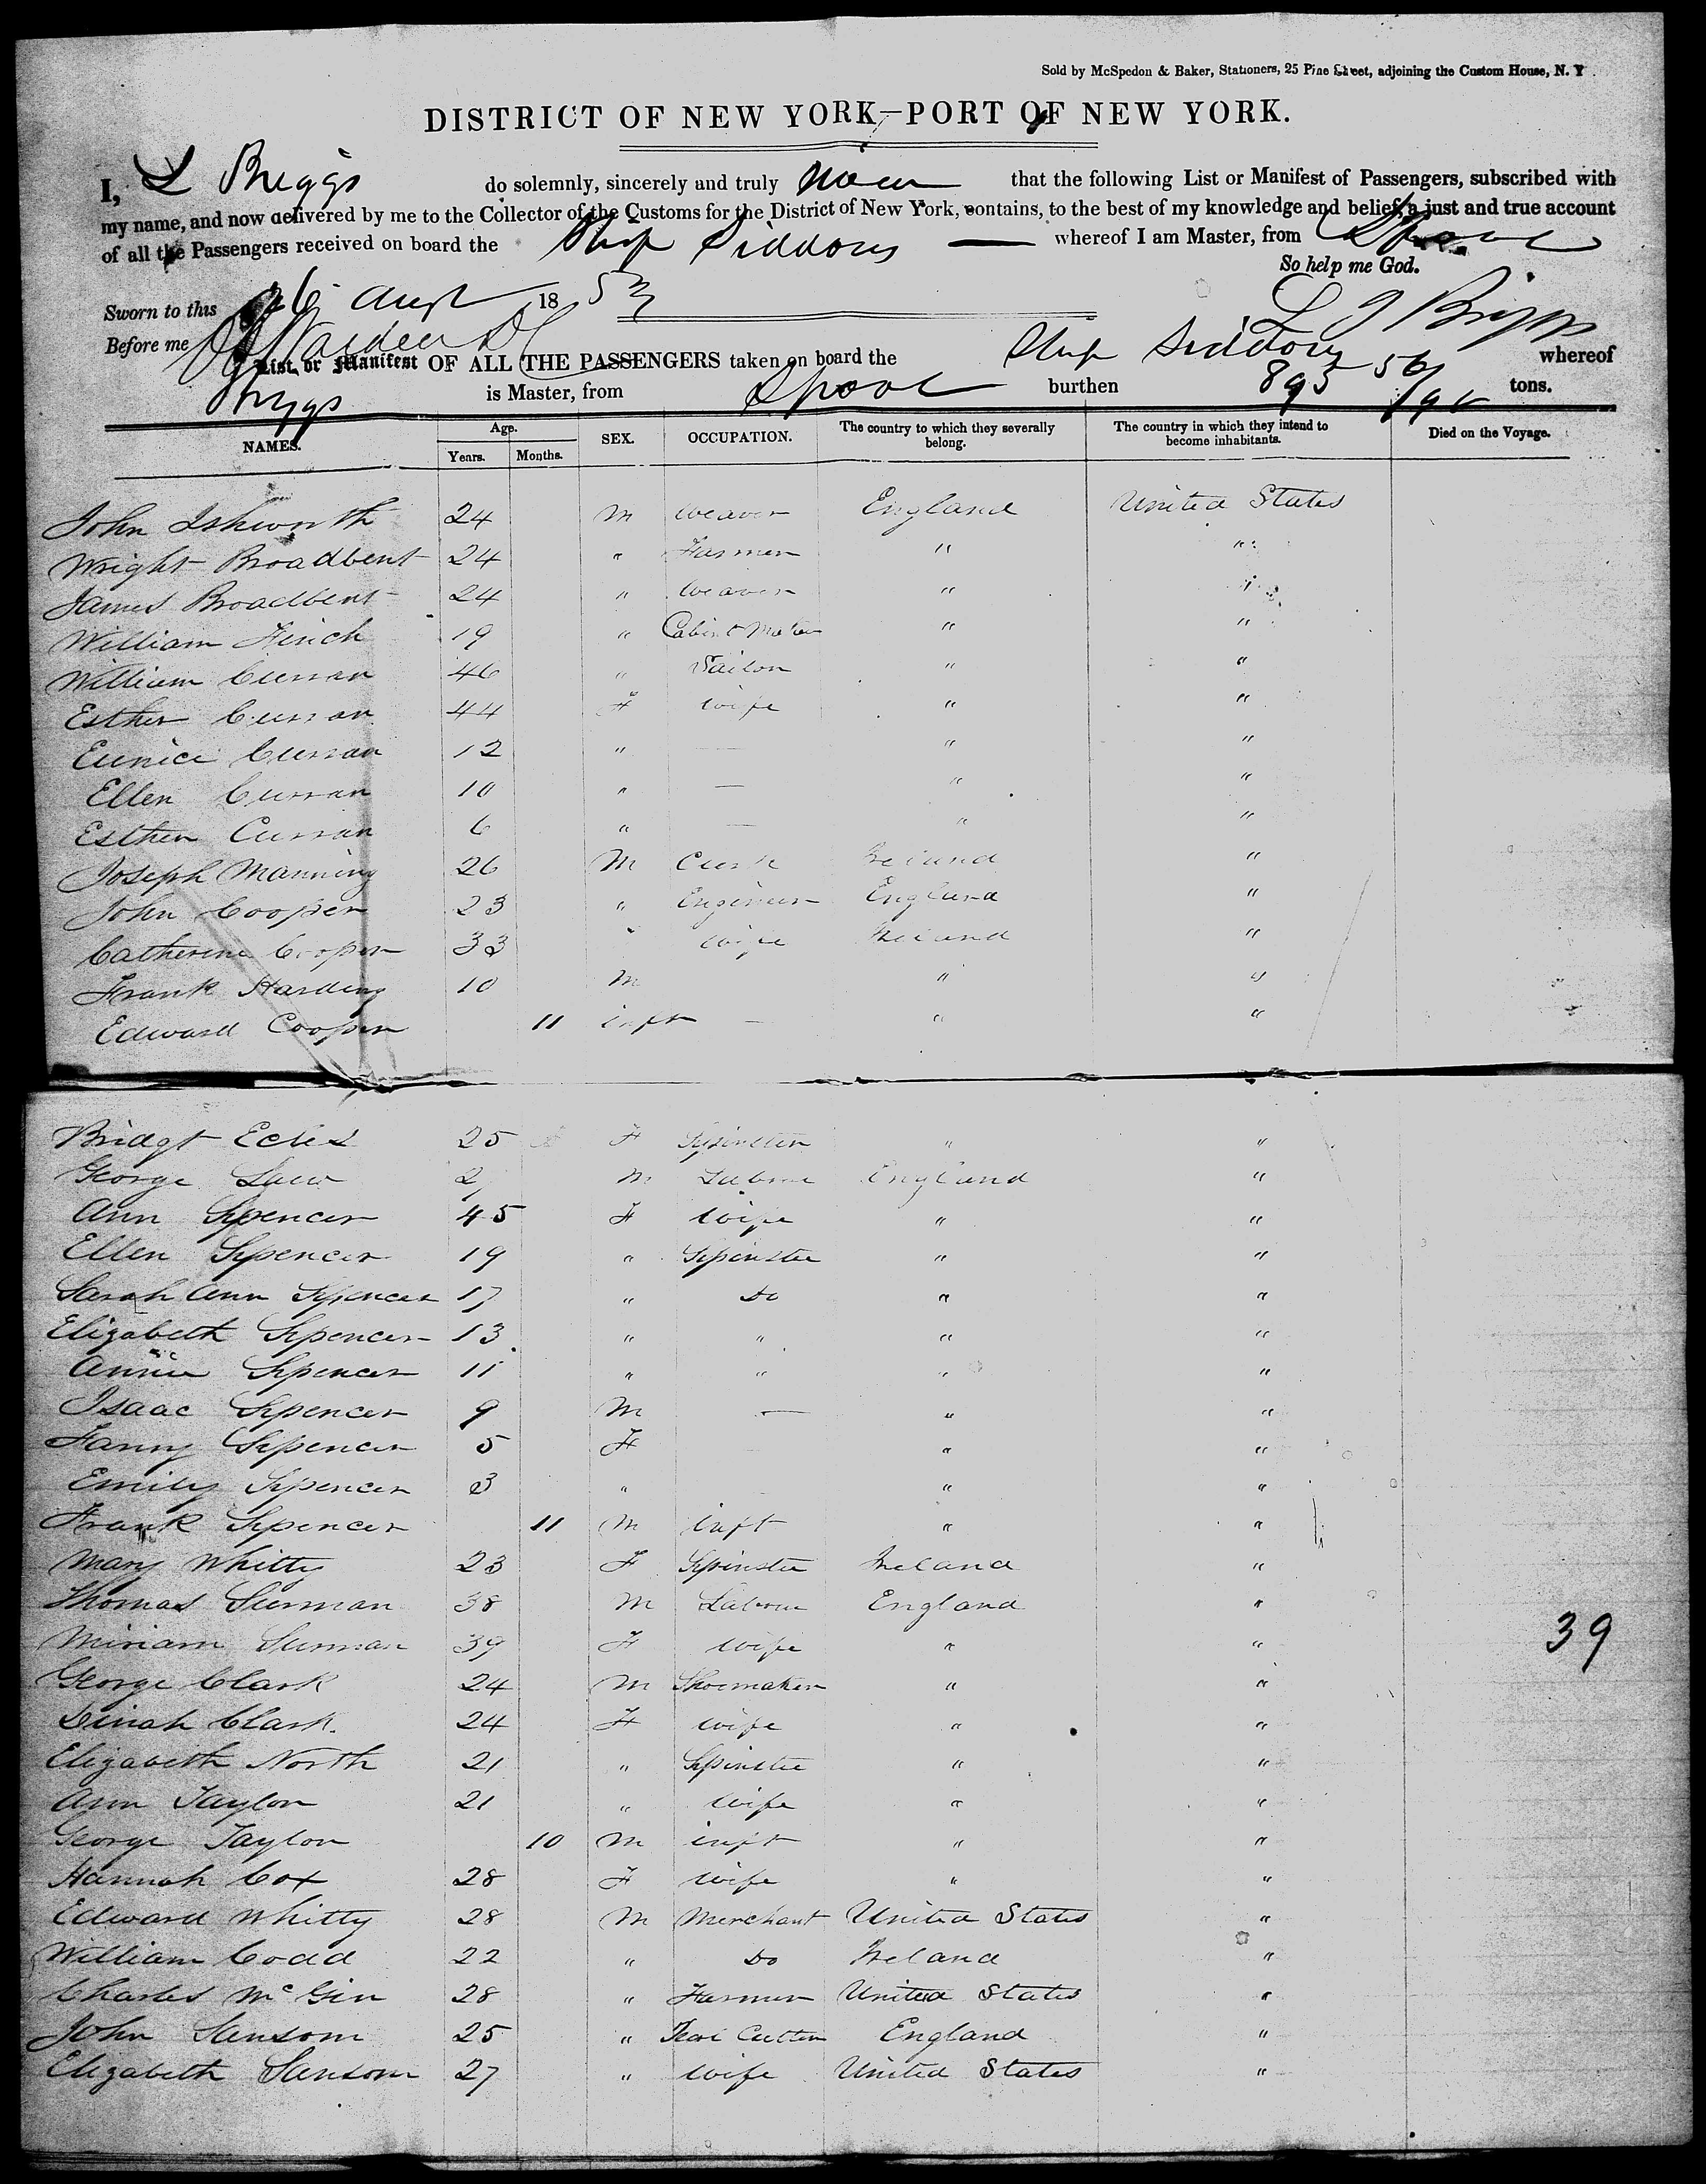 Sold by McSpedon & Baker, Stationers, 25 Pine Street, adjoining the Custom House, N. Y
DISTRICT OF NEW YORK—PORT OF NEW YORK.
I, L Briggs do solemnly, sincerely and truly that the following List or Manifest of Passengers, subscribed with
my name, and now delivered by me to the Collector of the Customs for the District of New York, contains, to the best of my knowledge and belief, a just and true account
of all the Passengers received on board the Ship Siddons — whereof I am Master, from Lpool
So help me God.
Sworn to this 26 Aug 1853 L J Briggs
Before me
List or Manifest OF ALL THE PASSENGERS taken on board the Ship Siddons whereof
Briggs is Master, from Lpool burthen 895 tons.
NAMES. Age. Years. Months. SEX. OCCUPATION. The country to which they severally belong. The country in which they intend to become inhabitants. Died on the Voyage.
John Ishworth 24 M Weaver England United States
Wright Broadbent 24 " Farmer " "
James Broadbent 24 " Weaver " "
William Finch 19 " Cabint Maker " "
William Curran 46 " Tailor " "
Esther Curran 44 F Wife " "
Eunice Curran 12 " — " "
Ellen Curran 10 " — " "
Esther Curran 6 " — " "
Joseph Manning 26 M Clerk Ireland "
John Cooper 23 " Engineer England "
Catherine Cooper 33 " Wife Ireland "
Frank Harding 10 M " "
Edward Cooper 11 inft — " "
Bridgt Eccles 25 F Spinster " "
George Law M Labour England "
Ann Spencer 45 F Wife " "
Ellen Spencer 19 " Spinster " "
Sarah Ann Spencer 17 " Do " "
Elizabeth Spencer 13 " " " "
Annie Spencer 11 " " " "
Isaac Spencer 9 M — " "
Fanny Spencer 5 F " "
Emily Spencer 3 " " "
Frank Spencer 11 M inft " "
Mary Whitty 23 F Spinster Ireland "
Thomas Surman 38 M Labour England "
Miriam Surman 39 F Wife " " 39
George Clark 24 M Shoemaker " "
Dinah Clark. 24 F Wife " "
Elizabeth North 21 " Spinster " "
Ann Taylor 21 " Wife " "
George Taylor 10 M inft " "
Hannah Cox 28 F Wife " "
Edward Whitty 28 M Merchant United States "
William Codd 22 " Do Ireland "
Charles McGin 28 " Farmer United States "
John Sansom 25 " Cutter England "
Elizabeth Sansom 27 " Wife United States "